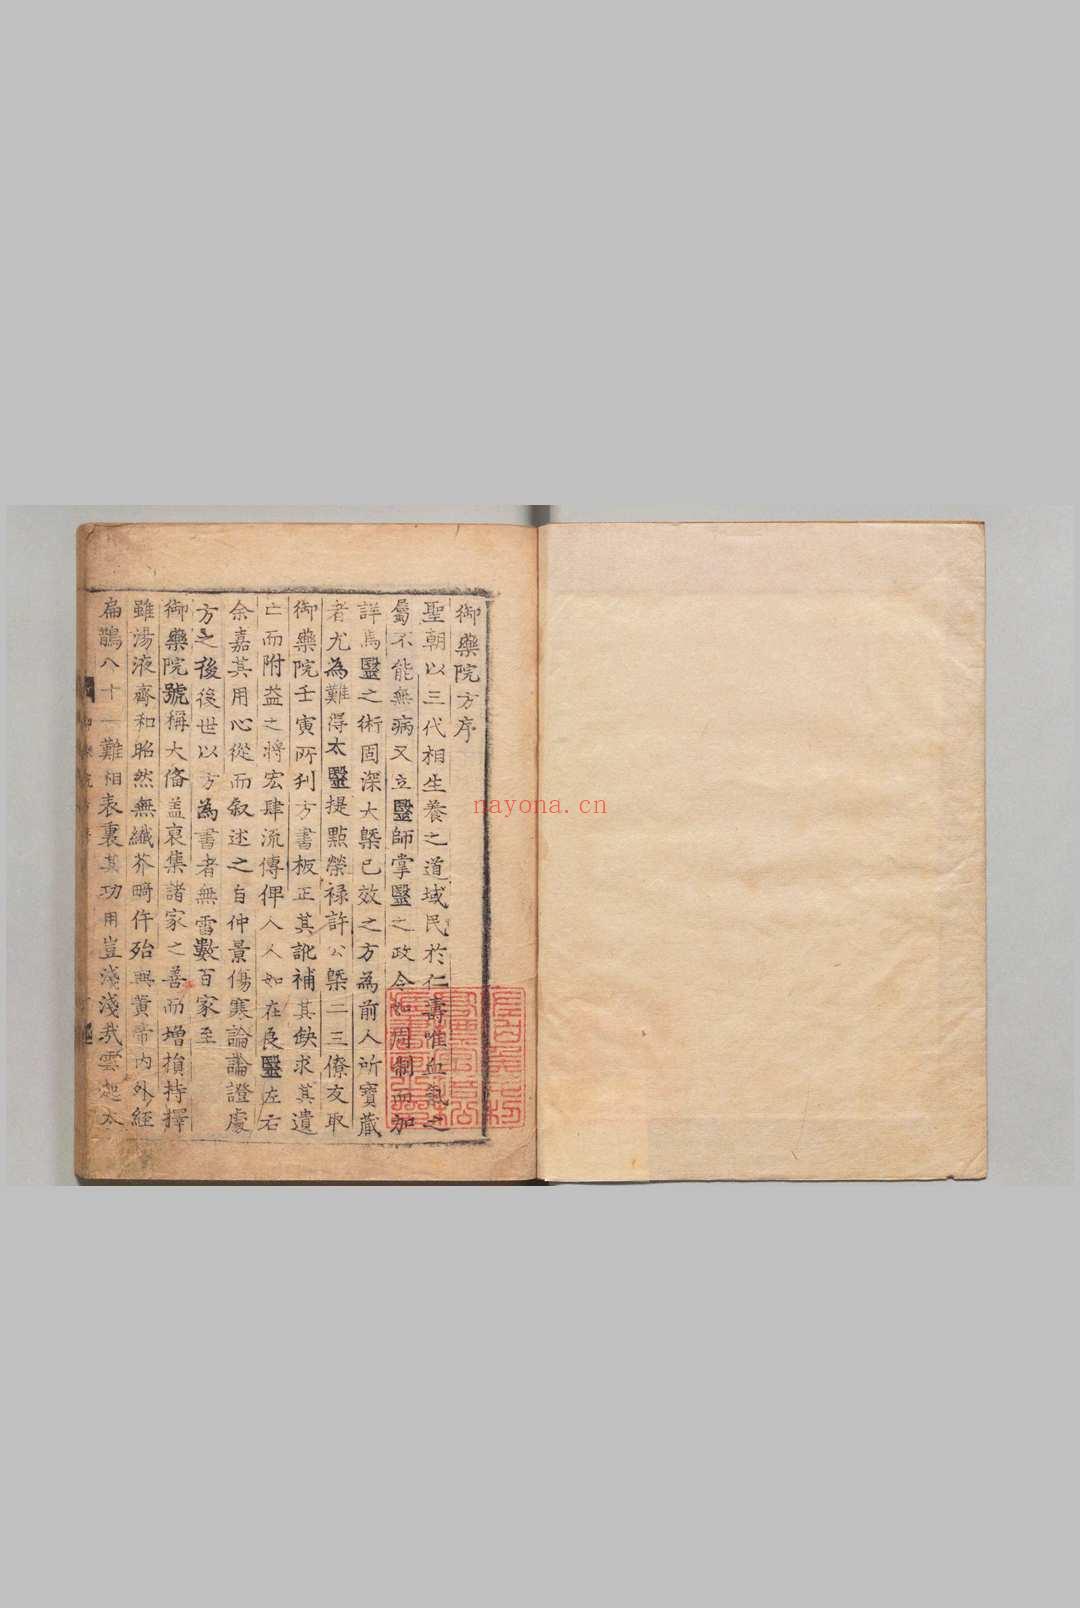 御藥院方序
聖朝以三代相生養之道域民於仁壽惟血氣之
屬不能無病又立毉師掌毉之政令如周制而加
詳焉毉之術固深大槩已效之方為前人所寶藏
者尤為難得太毉提點榮禄許公槩二三僚友取
御藥院壬寅所刋方書板正其訛補其缺求其遺
亡而附益之將宏肆流傳俾人人如在良毉左右
余嘉其用心從而叙述之自仲景傷寒論論證處
方之後後世以方為書者無雷數百家至
御藥院號稱大俻盖裒集諸家之善而增損持擇
雖湯液齊和昭然無纖芥畸仵殆與黃帝内外經
扁鵲八十一難相表裏其功用豈淺淺哉雲迯太
nayona.cn